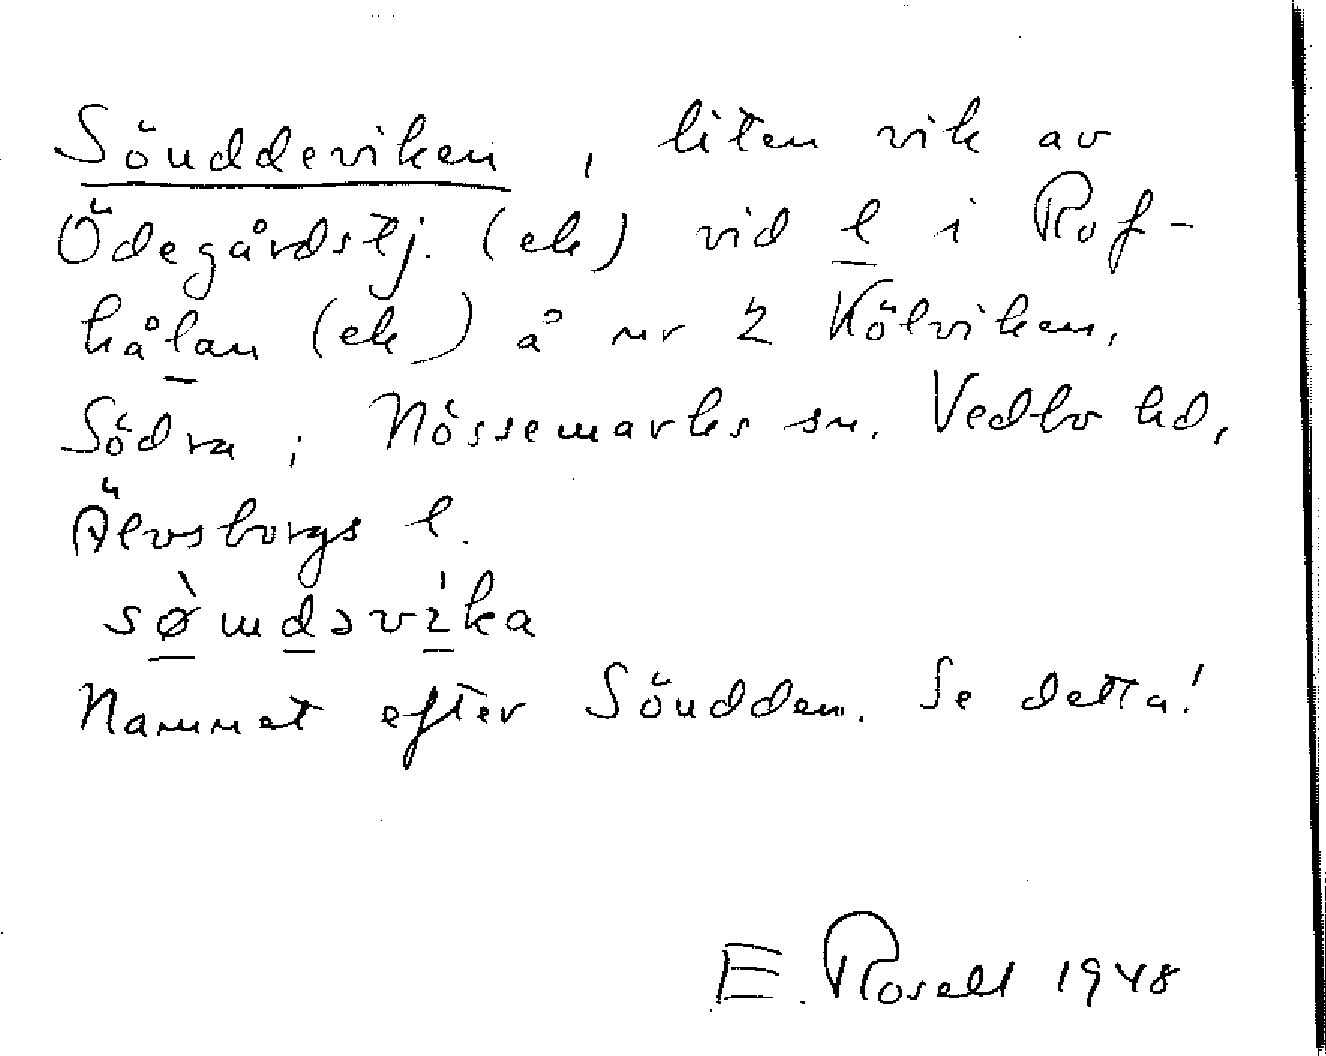 Söuddeviken, liten vik av
Ödegårdstj. (ek) vid l i Rof-
hålan (ek) å nr 2 Kölviken,
Södra; Nössemarks sn, Vedbo hd,
Älvsborgs l.
sø̀ɯdəvı́ka
Namnet efter Söudden. Se detta!
E. Rosell 1948